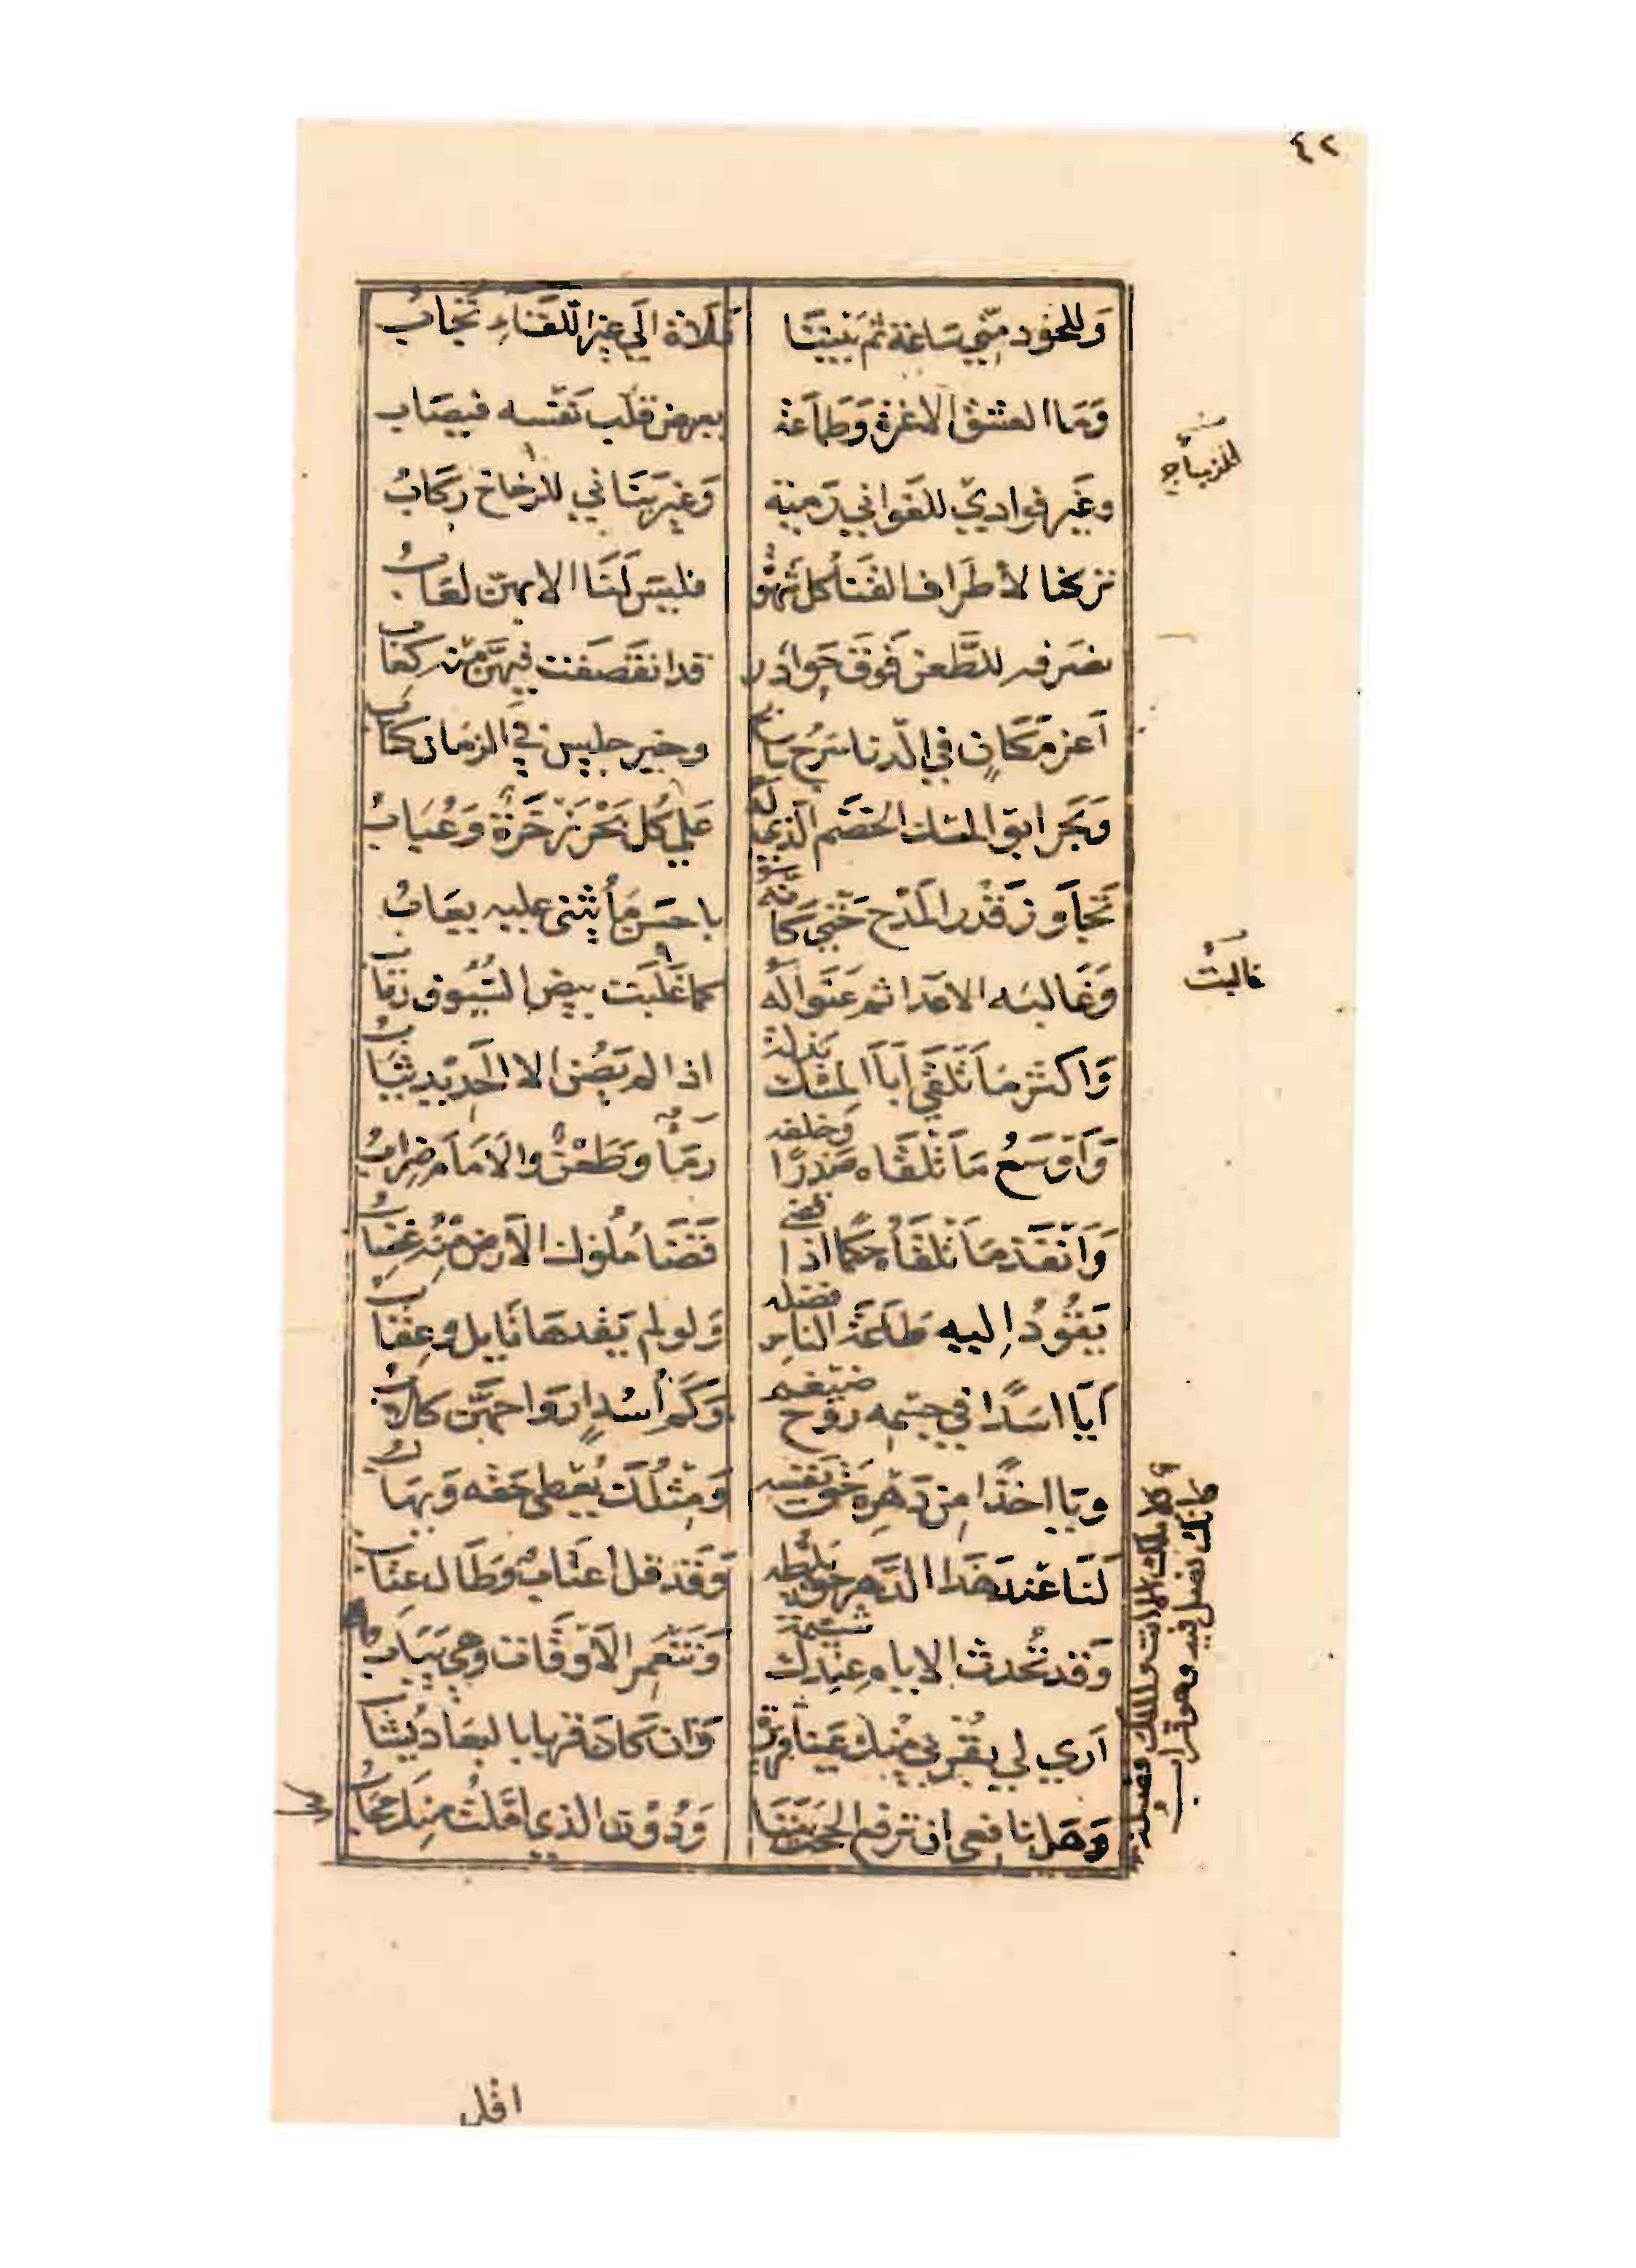 ٤٢
وَللخود مِنّي سَاعَة ثم بَيننَا فَلَاة الَي غير اللقَاءِ تُجَابُ
وَمَا العشق الا غرة وَطمَاعَة يعرض قلب نفسه فيصَاب
وغَير فوادي للغواني رَمية وَغير بنَاني للرخاخ ركابُ
للزجاج
تركنا لأطرَاف القنَا كل شهوة فليسَ لَنَا الا بهن لعَابُ
نصَرفه للطَّعن فَوق حَوَادر قد انقَصَفت فيهَّن منه كعَابُ
أعز مَكَانٍ في الدّنا سَرْج سَابح وخير جليس في الزمَان كتَابُ
وَبَحر ابو المسْك الخضَم الَذي لَه عَلي كُل بَحْر زَخرَة وَعُبَابُ
تَجَاوز قَدر المَدْح حَتي كَانه باحسَن مَا يُثنى عليه يعَابُ
وَغَالبَه الاعَدا ثم عَنَوا لَه كما غَلَبَت بيض السُّيُوف رقَابُ
غالبتْ
وَاكثر مَا تَلقَي اَبَا المسْك بَذلة اذا لم يَصُن الا الحَديد ثيَابُ
وَاَوسَعُ مَا تَلقَاه صَدرًا وَخلفه رمَا وَطَعْن والاَمَامَ ضِرابُ
وَاَنفَذ مَا تَلقَاُه حكما اذا قضي قَضَا مُلُوك الاَرض مِنْه غِضَابُ
يَقُودُ اِليه طَاعَة الناس فضله وَلو لم يَقُدهَا نَايل وعِقابُ
اَيَا اسَدًا في جسْمه رُوح ضَيغم وَكَم اُسْدٍ ارْوَاحهَّن كلابُ
ويَا اخَذا مِن دَهْره حَق نَفسه وَمثلُكَ يُعْطى حَقه وَيهَابُ
لَنَا عندَ هَذا الدَّهر حَق يَلطه وَقَد قل اعتَابٌ وَطَال عِتَابُ
وَقد تُحدث الايام عِندك شيمة وَتَنعَمر الاَوقَات وهي يَبَابُ
وَلا ملك الا انت والملك فضلة كانك نصل فيه وهو قرابُ
اَري لي بقُربي منِك عَينا قَريرة وَان كَان قربا بالبعَاد يُشَابُ
وَهَل نافعي ان ترفع الحجب بَيننَا وَدُون الذي امَّلتُ مِنك حجَابُ
اقل